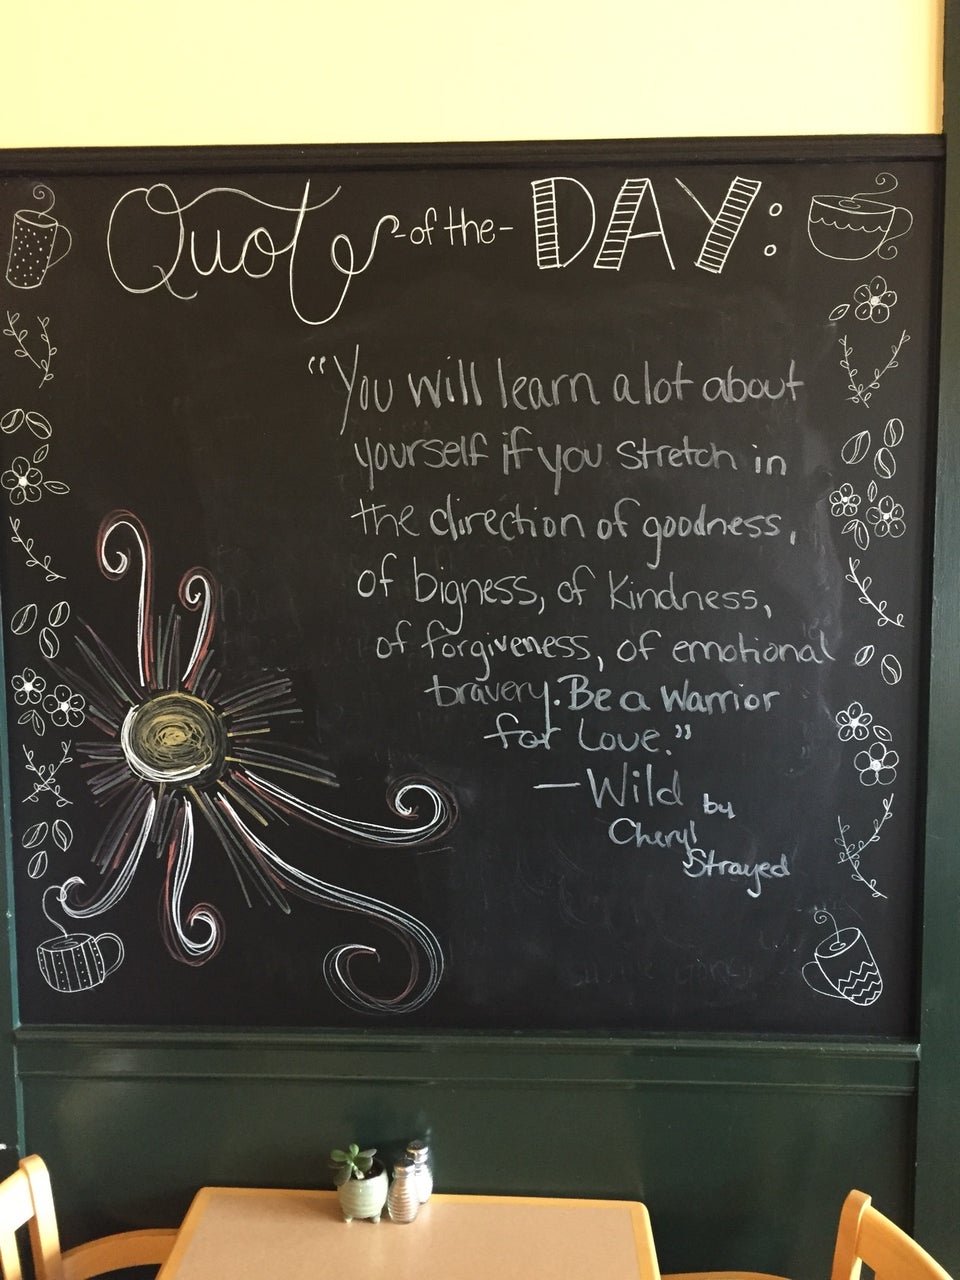 Quote -of the- DAY:
"You will learn a lot about
yourself if you stretch in
the direction of goodness,
of bigness, of kindness,
of forgiveness, of emotional
bravery. Be a Warrior
for Love."
— Wild by
Cheryl
Strayed